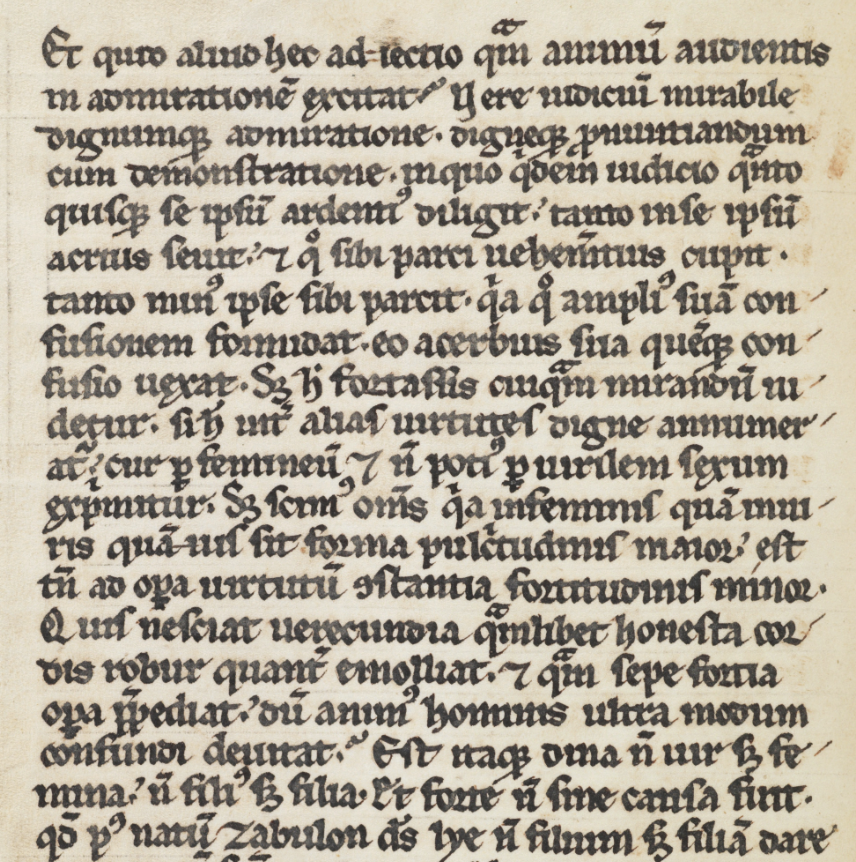 Et quıd aliud hec adiectio qͣm animū audientis
in admirationē excitat. Uere iudiciū mirabile
dignumqꝫ admiratione. digneqꝫ ꝓnuntiandum
cum demonstratione. inquo qͥdem̄ iudicio qͣnto
quisqꝫ se ipsū ardenti᾽ diligit. tanto inse ipsū
acrius seuit. ⁊ qͦ sibi parci uehem̄tius cupit.
tanto min᾽ ipse sibi parcit. qͥa qͦ ampli᾽ suā con
fusionem formidat. eo acerbius sua quēqꝫ con
fusio uexat. Sꝫ h̄ fortassis cuiqͣm mirandū ui
detur. si h̄ uirt̄ alias uirtutes digne annumer
atͣ. cur ꝑ femineū ⁊ n̄ poti᾽ ꝑ uirilem sexum
exp̄mitur. Sꝫ scim᾽ om̄s qͥa infeminis quā inui
ris quā-uis sit forma pulcͥtudinis maior. est
tn̄ ad oꝑa uirtutū ꝯstantia fortitudinis minor.
Quis nesciat uerecundia qͣmlibet honesta cor
dis robur quant̄ emolliat. ⁊ qͣm sepe fortia
oꝑa p̄pediat. dū anim᾽ hominis ultra modum
confundi deuitat. Est itaqꝫ dina n̄ uir sꝫ fe
mina. n̄ fili᾽ sꝫ filia. Et forte n̄ sine causa fuit.
qd̄ p᾽ natū Zabulon d̄s lye n̄ filium sꝫ filiā dare